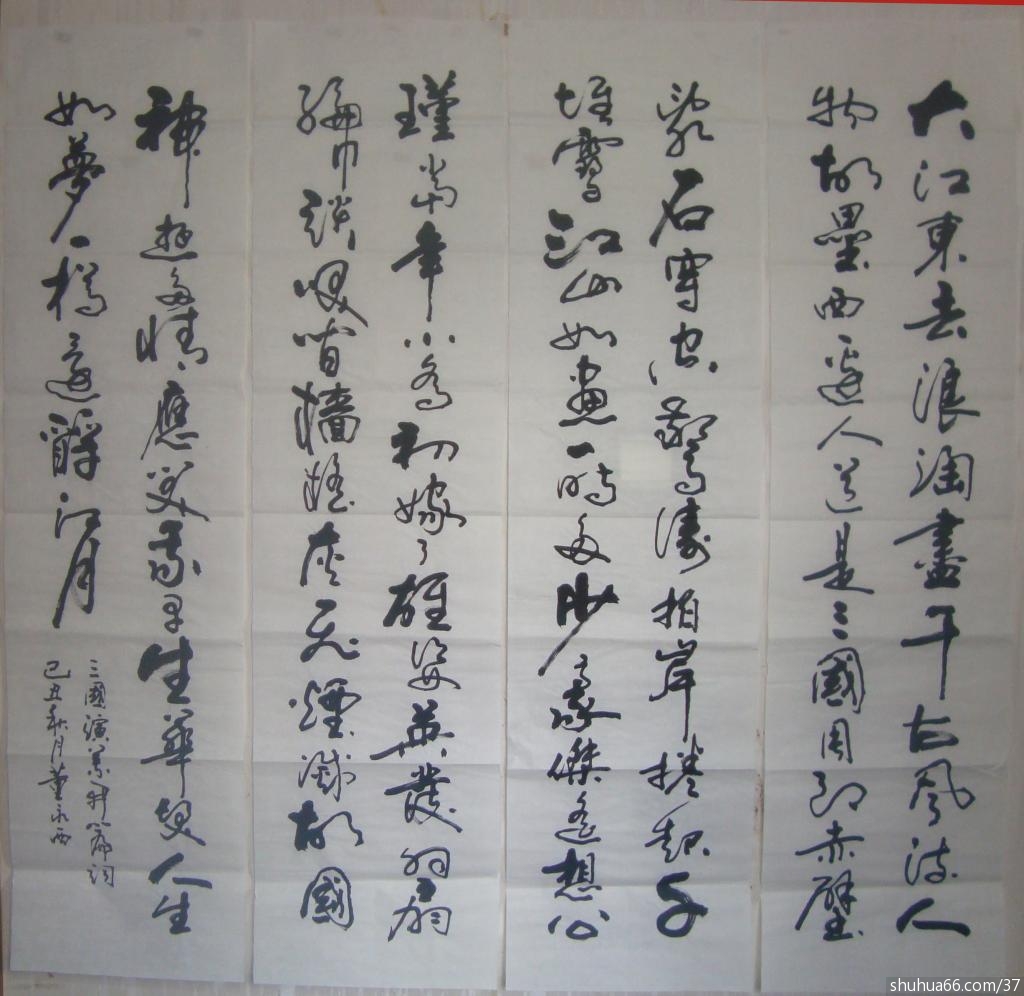 大江東去浪淘盡千古風流人
物故壘西邊人道是三國周郎赤壁
亂石穿空驚濤拍岸捲起千
堆雪江山如畫一時多少豪傑遙想公
瑾當年小喬初嫁了雄姿英發羽扇
綸巾談咲間檣櫓灰飛煙滅故國
神遊多情應笑我早生華髮人生
如夢一樽還酹江月
三國演義开篇詞
己丑秋月董永西
shuhua66.com/37